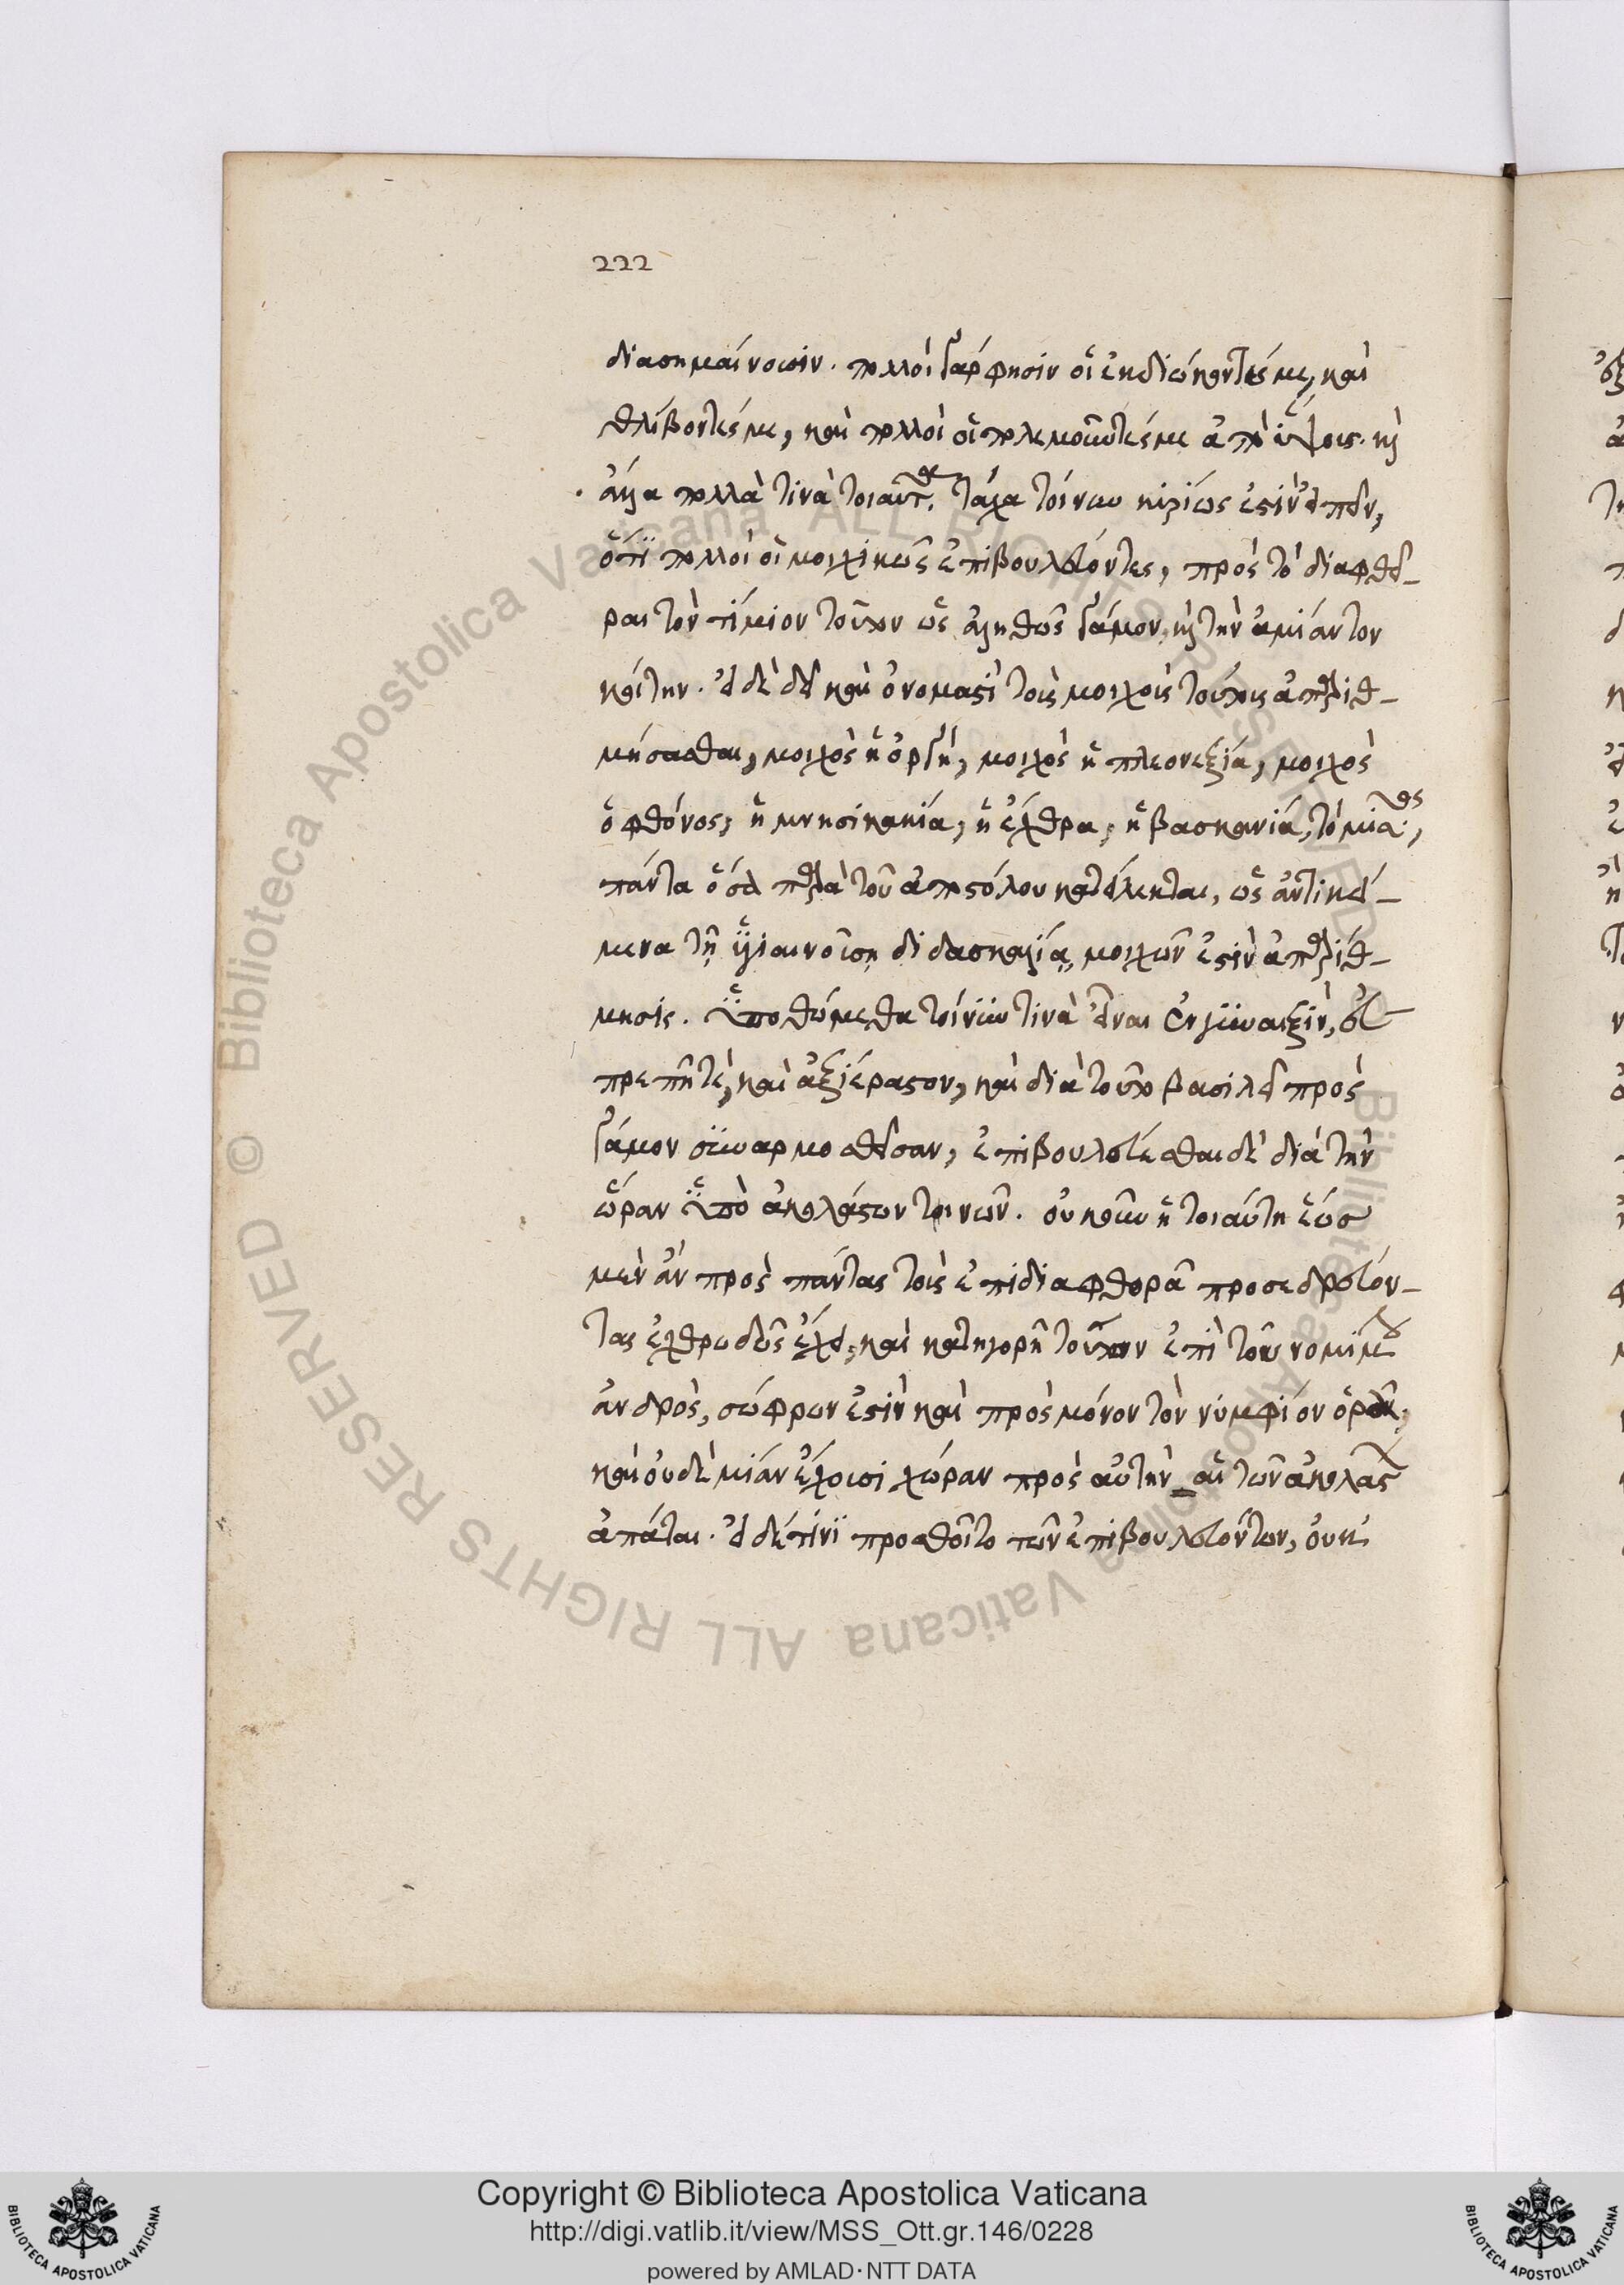 222
διασημαίνουσιν. πολλοὶ γάρ φησιν οἱ ἐκδιώκοντές με, καὶ
θλίβοντές με, καὶ πολλοὶ οἱ πολεμοῦντές με ἀπὸ ὕψους. καὶ
ἄλλα πολλὰ τινὰ τοιαῦτα. τάχα τοίνυν κυρίως ἐστὶν εἰπεῖν,
ὅτι πολλοὶ οἱ μοιχικῶς ἐπιβουλεύοντες, πρὸς τὸ διαφθεῖ-
ραι τὸν τίμιον τοῦτον ὡς ἀληθῶς γάμον, καὶ τὴν ἀμίαντον
κοίτην. εἰ δὲ δεῖ καὶ ὀνομαστὶ τοὺς μοιχοὺς τούτους ἀπαριθ-
μήσασθαι, μοιχὸς ἡ ὀργή, μοιχὸς ἡ πλεονεξία, μοιχὸς
ὁ φθόνος, ἡ μνησικακία, ἡ ἔχθρα, ἡ βασκανία,
πάντα ὅσα παρὰ τοῦ ἀποστόλου κατείλεκται, ὡς ἀντικεί-
μενα τῇ ὑγιαινούσῃ διδασκαλίᾳ, μοιχῶν ἐστὶν ἀπαρίθ-
μησις. ὑποθώμεθα τοίνυν τινὰ εἶναι ἐν γυναιξὶν, εὐ-
πρεπῆ τὲ, καὶ ἀξιέραστον, καὶ διὰ τοῦτο βασιλεῖ πρὸς
γάμον συναρμοσθεῖσαν, ἐπιβουλεύεσθαι δὲ διὰ τὴν
ὥραν ὑπὸ ἀκολάστων τινῶν. οὐκοῦν ἡ τοιαύτη ἕως
μὲν ἂν πρὸς πάντας τοὺς ἐπι διαφθορᾶ προσεδρεύον-
τας ἐχθρωδῶς ἔχει, καὶ κατηγορῇ τούτων ἐπὶ τοῦ νομίμου
ἀνδρὸς, σώφρων ἐστὶν καὶ πρὸς μόνον τὸν νύμφιον ὁρῶσα,
καὶ οὐδὲ μίαν ἔχουσι χώραν πρὸς αὐτὴν αἱ τῶν ἀκολάστων
ἀπάται. εἰ δέ τινι προσθοῖτο τῶν ἐπιβουλευόντων, οὐκ
Copyright © Biblioteca Apostolica Vaticana
http://digi.vatlib.it/view/MSS_Ott.gr.146/0228
powered by AMLAD·NTT DATA